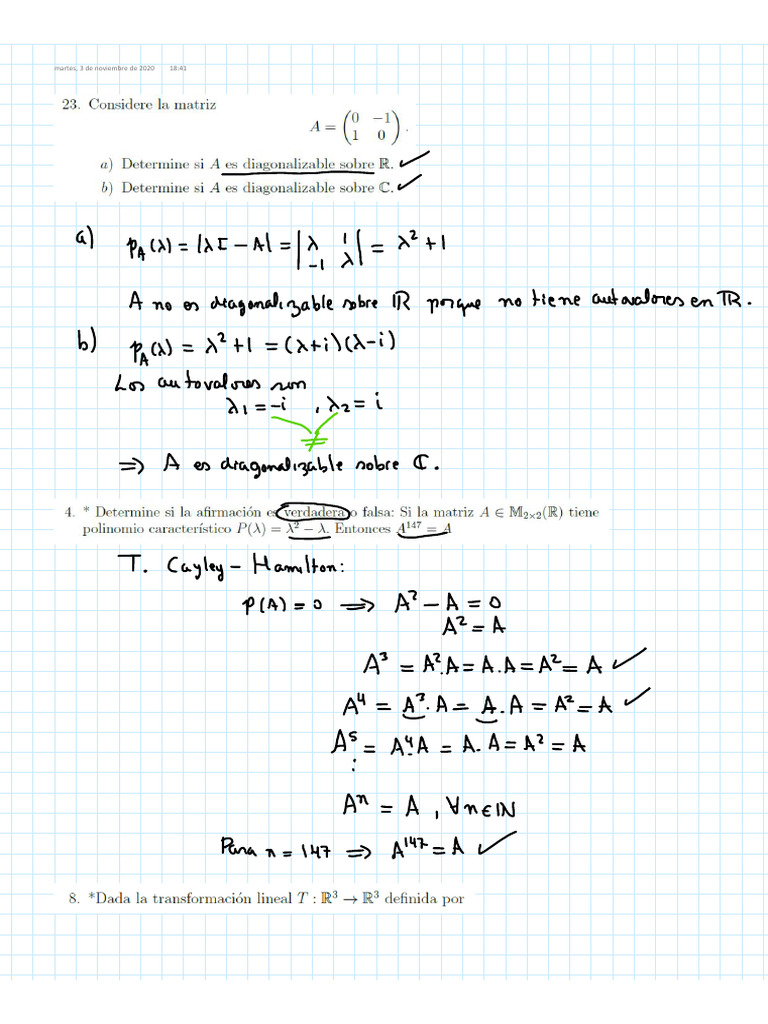 martes, 3 de noviembre de 2020 18:41
23. Considere la matriz
A = ( 0 −1
1 0 ) .
a) Determine si A es diagonalizable sobre ℝ. ✓
b) Determine si A es diagonalizable sobre ℂ. ✓
a) p_A(λ) = |λI − A| = | λ 1
−1 λ | = λ² + 1
A no es diagonalizable sobre ℝ porque no tiene autovalores en ℝ.
b) p_A(λ) = λ² + 1 = (λ+i)(λ−i)
Los autovalores son
λ₁ = −i , λ₂ = i
≠
⇒ A es diagonalizable sobre ℂ.
4. * Determine si la afirmación es verdadera o falsa: Si la matriz A ∈ 𝕄₂ₓ₂(ℝ) tiene
polinomio característico P(λ) = λ² − λ. Entonces A¹⁴⁷ = A
T. Cayley - Hamilton:
p(A) = 0 ⇒ A² − A = 0
A² = A
A³ = A².A = A.A = A² = A ✓
A⁴ = A³.A = A.A = A² = A ✓
A⁵ = A⁴.A = A.A = A² = A
⋮
Aⁿ = A , ∀n∈ℕ
Para n = 147 ⇒ A¹⁴⁷ = A ✓
8. *Dada la transformación lineal T : ℝ³ → ℝ³ definida por